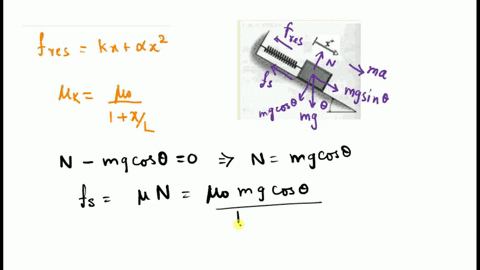 fres = kx + αx²
μK = μ0 / 1 + x/L
fres
x
N
ma
fs
mg sinθ
mg cosθ
mg
N - mg cosθ = 0 ⇒ N = mg cosθ
fs = μN = μ0 mg cosθ / 1